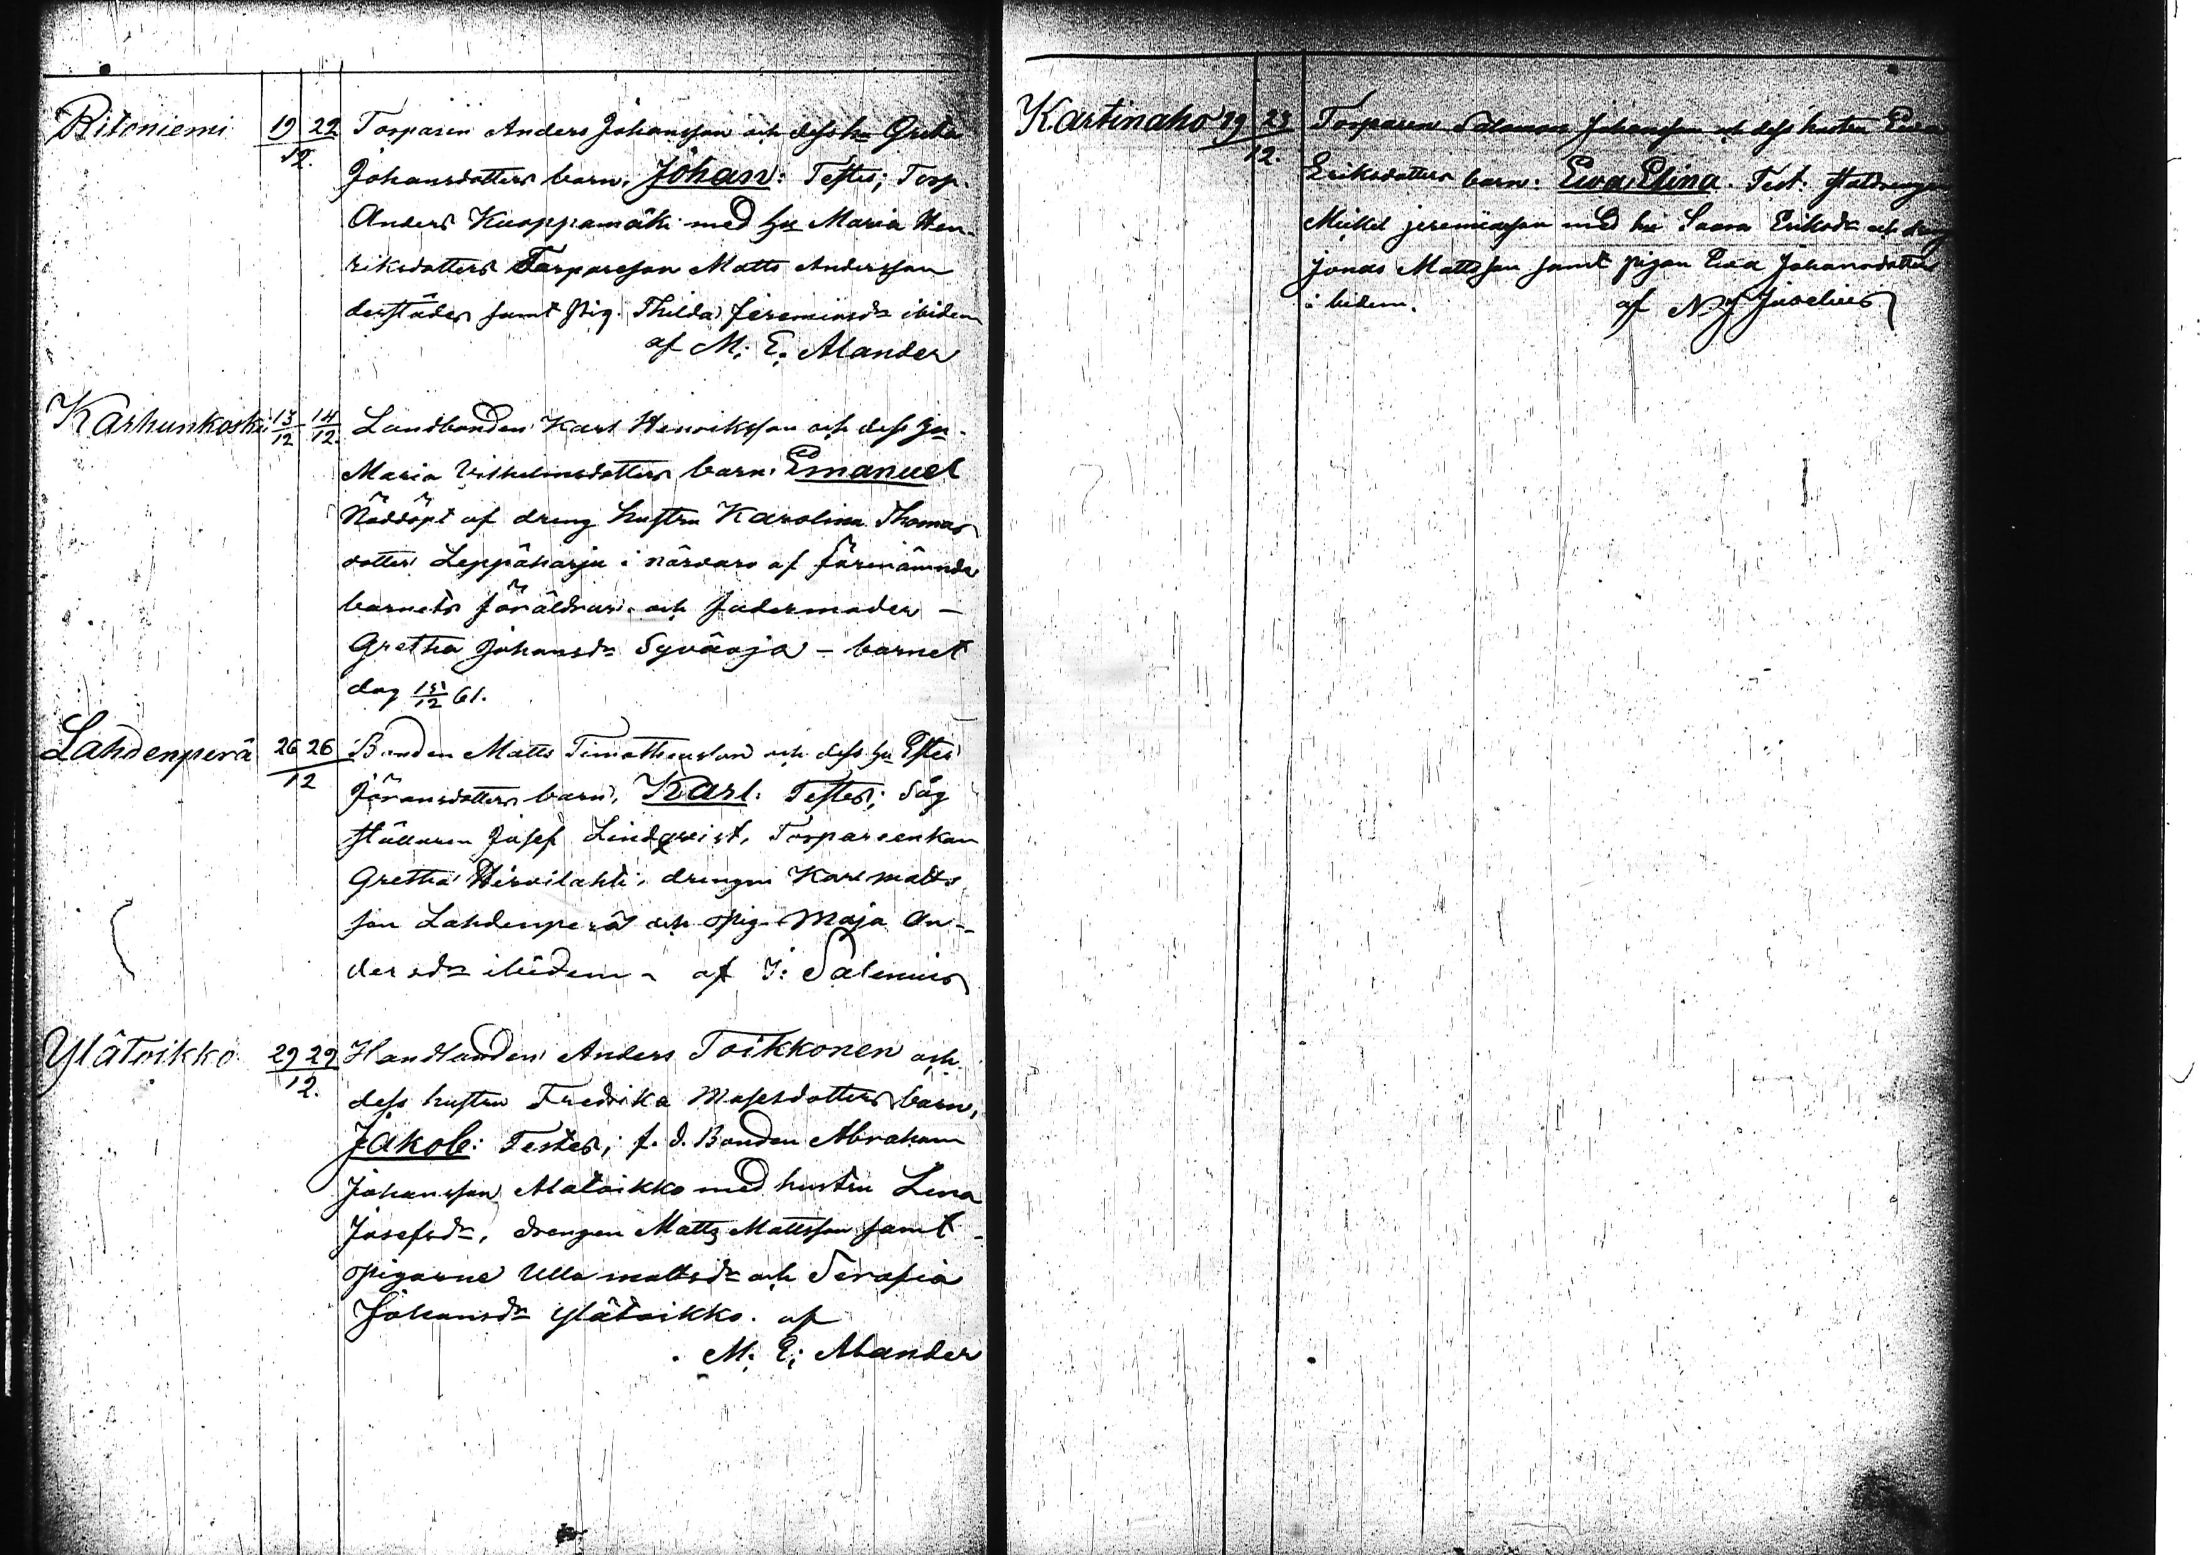 Ritoniemi 19 22 Torparen Anders Johansson och dess hu Greta
12.
Johansdotters barn, Johan: Testes; Torp.
Anders Kuoppamäki med hu Maria Hen-
riksdotter Torpareson Matts Andersson
derstädes samt Pig. Thilda Jeremiasdr ibidem
af M. E. Alander
Karhunkoski 13/12 14/12. Landbonden Karl Henriksson och dess hu
Maria Vilhelmsdotters barn. Emanuel
Nöddöpt af dreng hustru Karolina Thomas
dotter Leppäharju i närvaro af förenämnde
barnets föräldrar och fadermoder —
Gretha Johansdr Syväoja — barnet
dog 15/12 61.
Lahdenperä 26 26 Bonden Matts Timotheusson och dess hu Ester
12
Göransdotters barn, Karl. Testes; Såg
ställaren Josef Lindqvist, Torpareenkan
Gretha Hirvilahti, drengen Karl Matts
son Lahdenperä och pig. Maja An-
dersdr ibidem - af J. Salenius
Ylätoikko 29 29 Handlanden Anders Toikkonen och
12.
dess hustru Fredrika Mosesdotters barn,
Jakob: Testes; f. d. Bonden Abraham
Johansson Alatoikko med hustru Lena
Josefsdr, drengen Matts Mattsson samt
pigorne Ulla Mattsdr och Serafia
Johansdr Ylätoikko. af
M. E. Alander
Kartinaho 29 29 Torparen Salomon Johansson och dess hustru Eva
12.
Eriksdotters barn: Ewa Elina. Test:
Mickel Jeremiasson med hu Saara Eriksdr och dreng
Jonas Mattsson samt pigan Ewa Johansdotter
ibidem. af N. J. Juselius